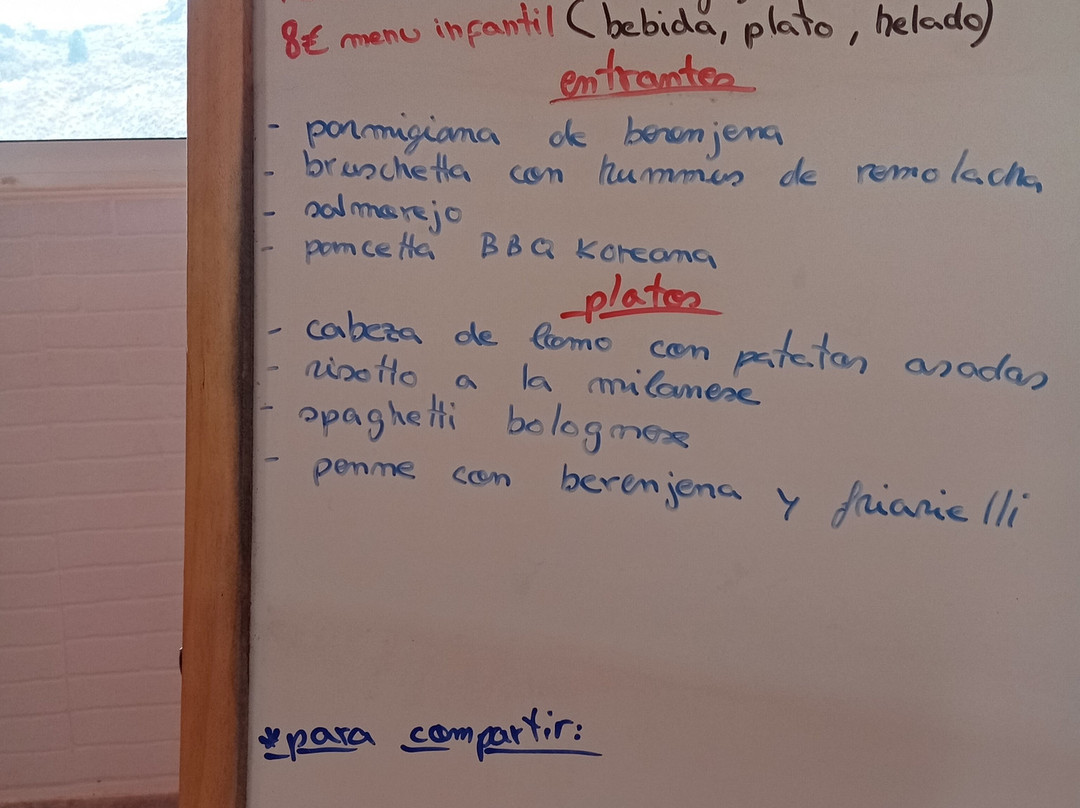 8€ menu infantil (bebida, plato, helado)
entrantes
- parmigiana de berenjena
- bruschetta con hummus de remolacha
- salmorejo
- pancetta BBQ Koreana
platos
- cabeza de lomo con patatas asadas
- risotto a la milanese
- spaghetti bolognese
- penne con berenjena y friarielli
*para compartir: